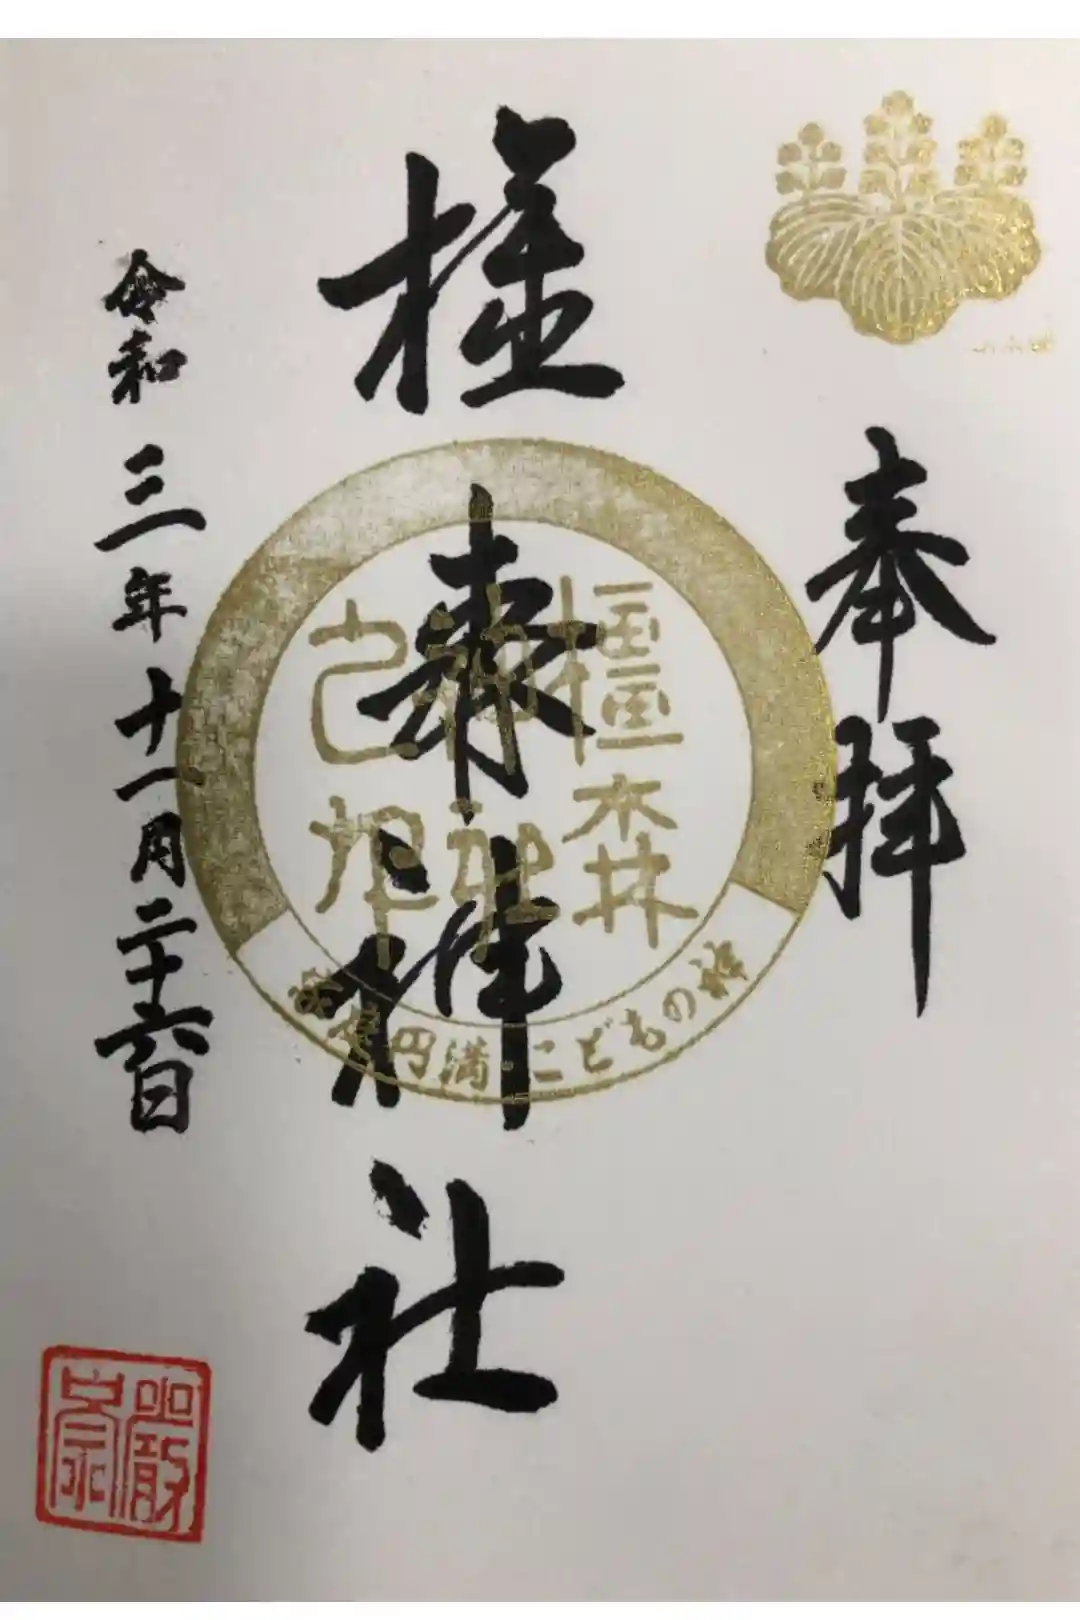 奉拝
橿森神社
橿森
神社
之印
家庭円満・こどもの神
令和三年十一月二十六日